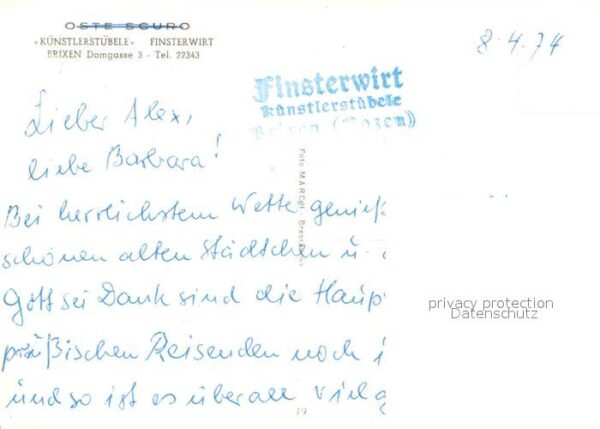 OSTE SCURO
«KÜNSTLERSTÜBELE» FINSTERWIRT
BRIXEN Domgasse 3 - Tel. 22343
8.4.74
Finsterwirt
Künstlerstübele
Brixen (Bozen)
Lieber Alex,
liebe Barbara!
Bei herrlichstem Wetter genieß
schönen alten Städtchen u.
Gott sei Dank sind die Haup
preußischen Reisenden noch
und so ist es überall viel g
Foto MARCH - Bressanone
privacy protection
Datenschutz